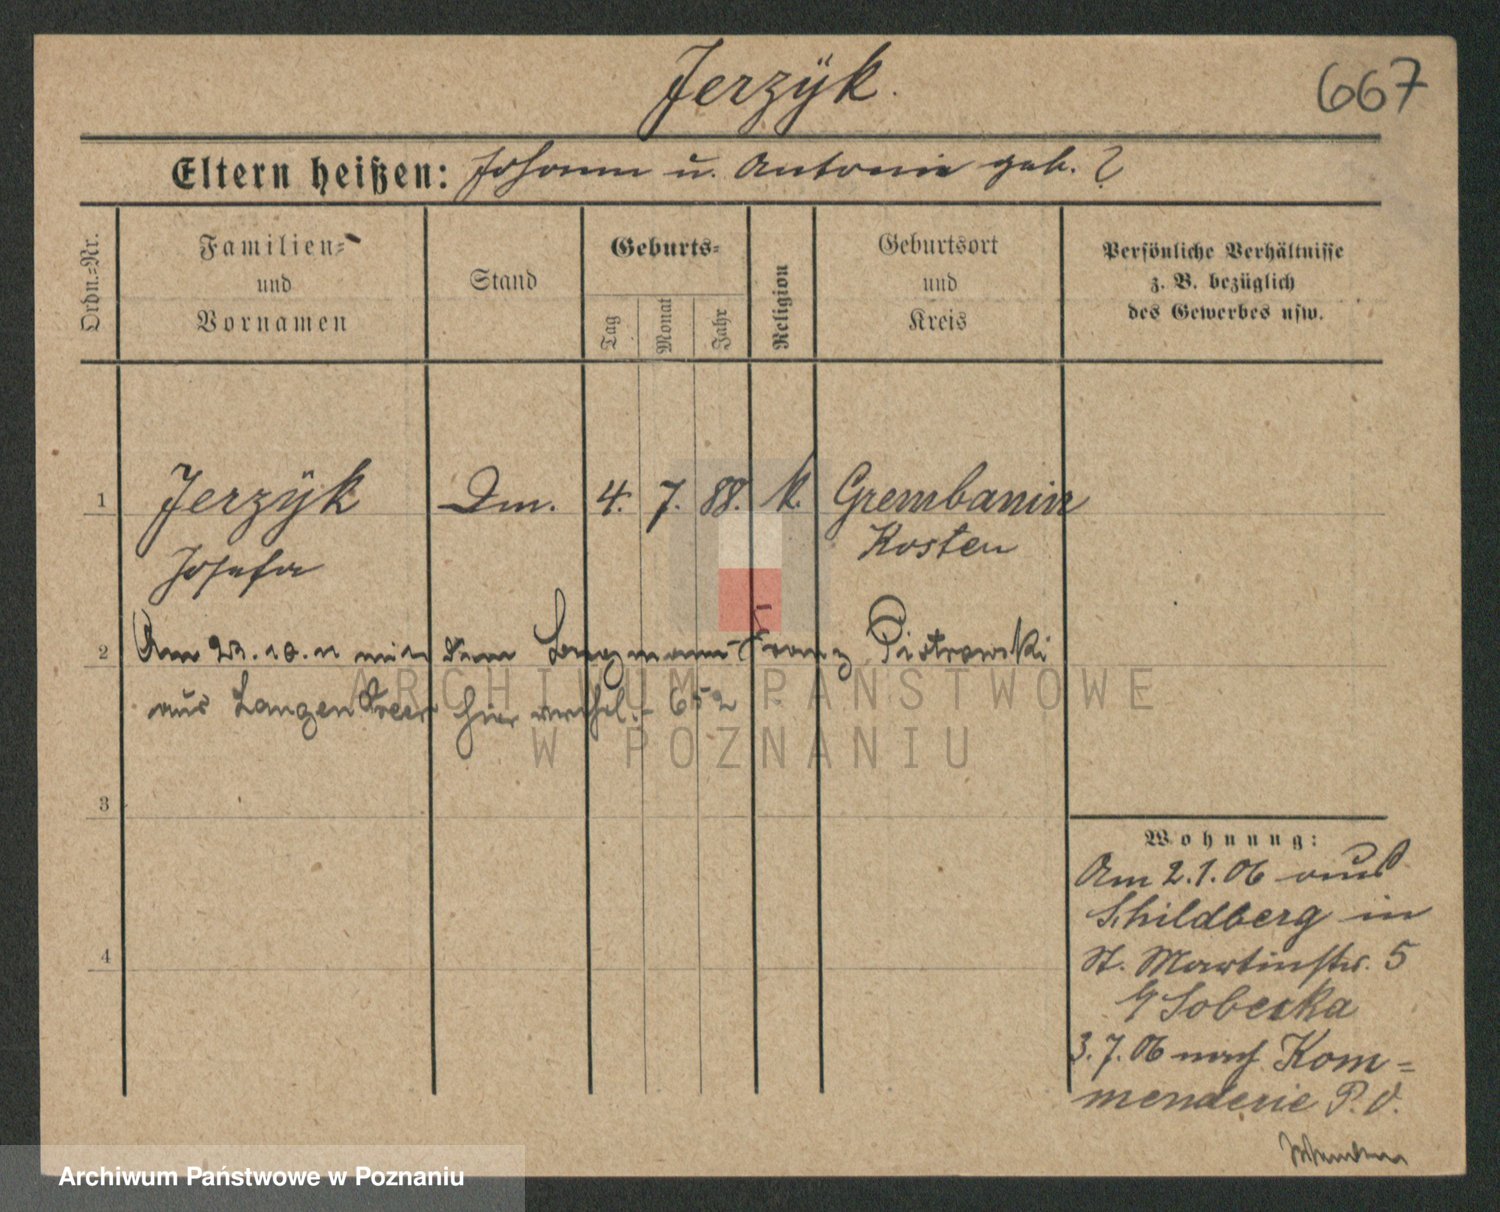 Jerzÿk.
667
Eltern heißen: Johann u. Antonie geb. ?
Ordn.=Nr.
Familien=
und
Vornamen
Stand
Geburts=
Tag
Monat
Jahr
Religion
Geburtsort
und
Kreis
Persönliche Verhältnisse
z. B. bezüglich
des Gewerbes usw.
1 Jerzÿk Dm. 4. 7. 88. k. Grembanin
Josefa Kosten
2 Am 23.10.11 mit dem Bergmann Franz Piotrowski
aus Langendreer hier verehel. 652
ARCHIWUM PAŃSTWOWE
W POZNANIU
3
4
Wohnung:
Am 2.1.06 aus
Schildberg in
St. Martinstr. 5
b/ Sobecka
3.7.06 nach Kom=
menderie P. O.
Archiwum Państwowe w Poznaniu